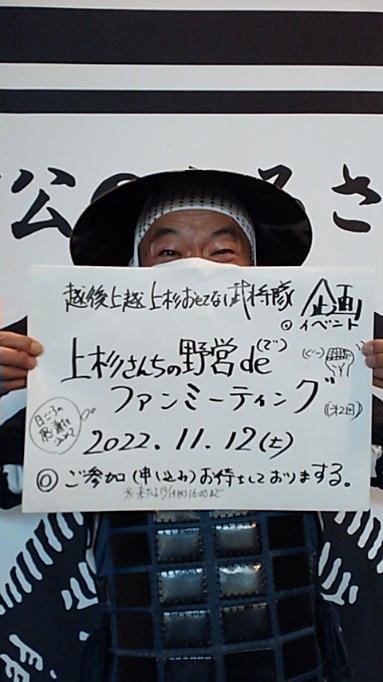 公のふるさ
越後上越 上杉おもてなし武将隊
企画
◎イベント
上杉さんちの野営de(で)
(ぐー)
ファンミーティング
(第2回)
日ごろの
感謝を
込めて
2022.11.12(土)
◎ご参加(申し込み)お待ちしておりまする。